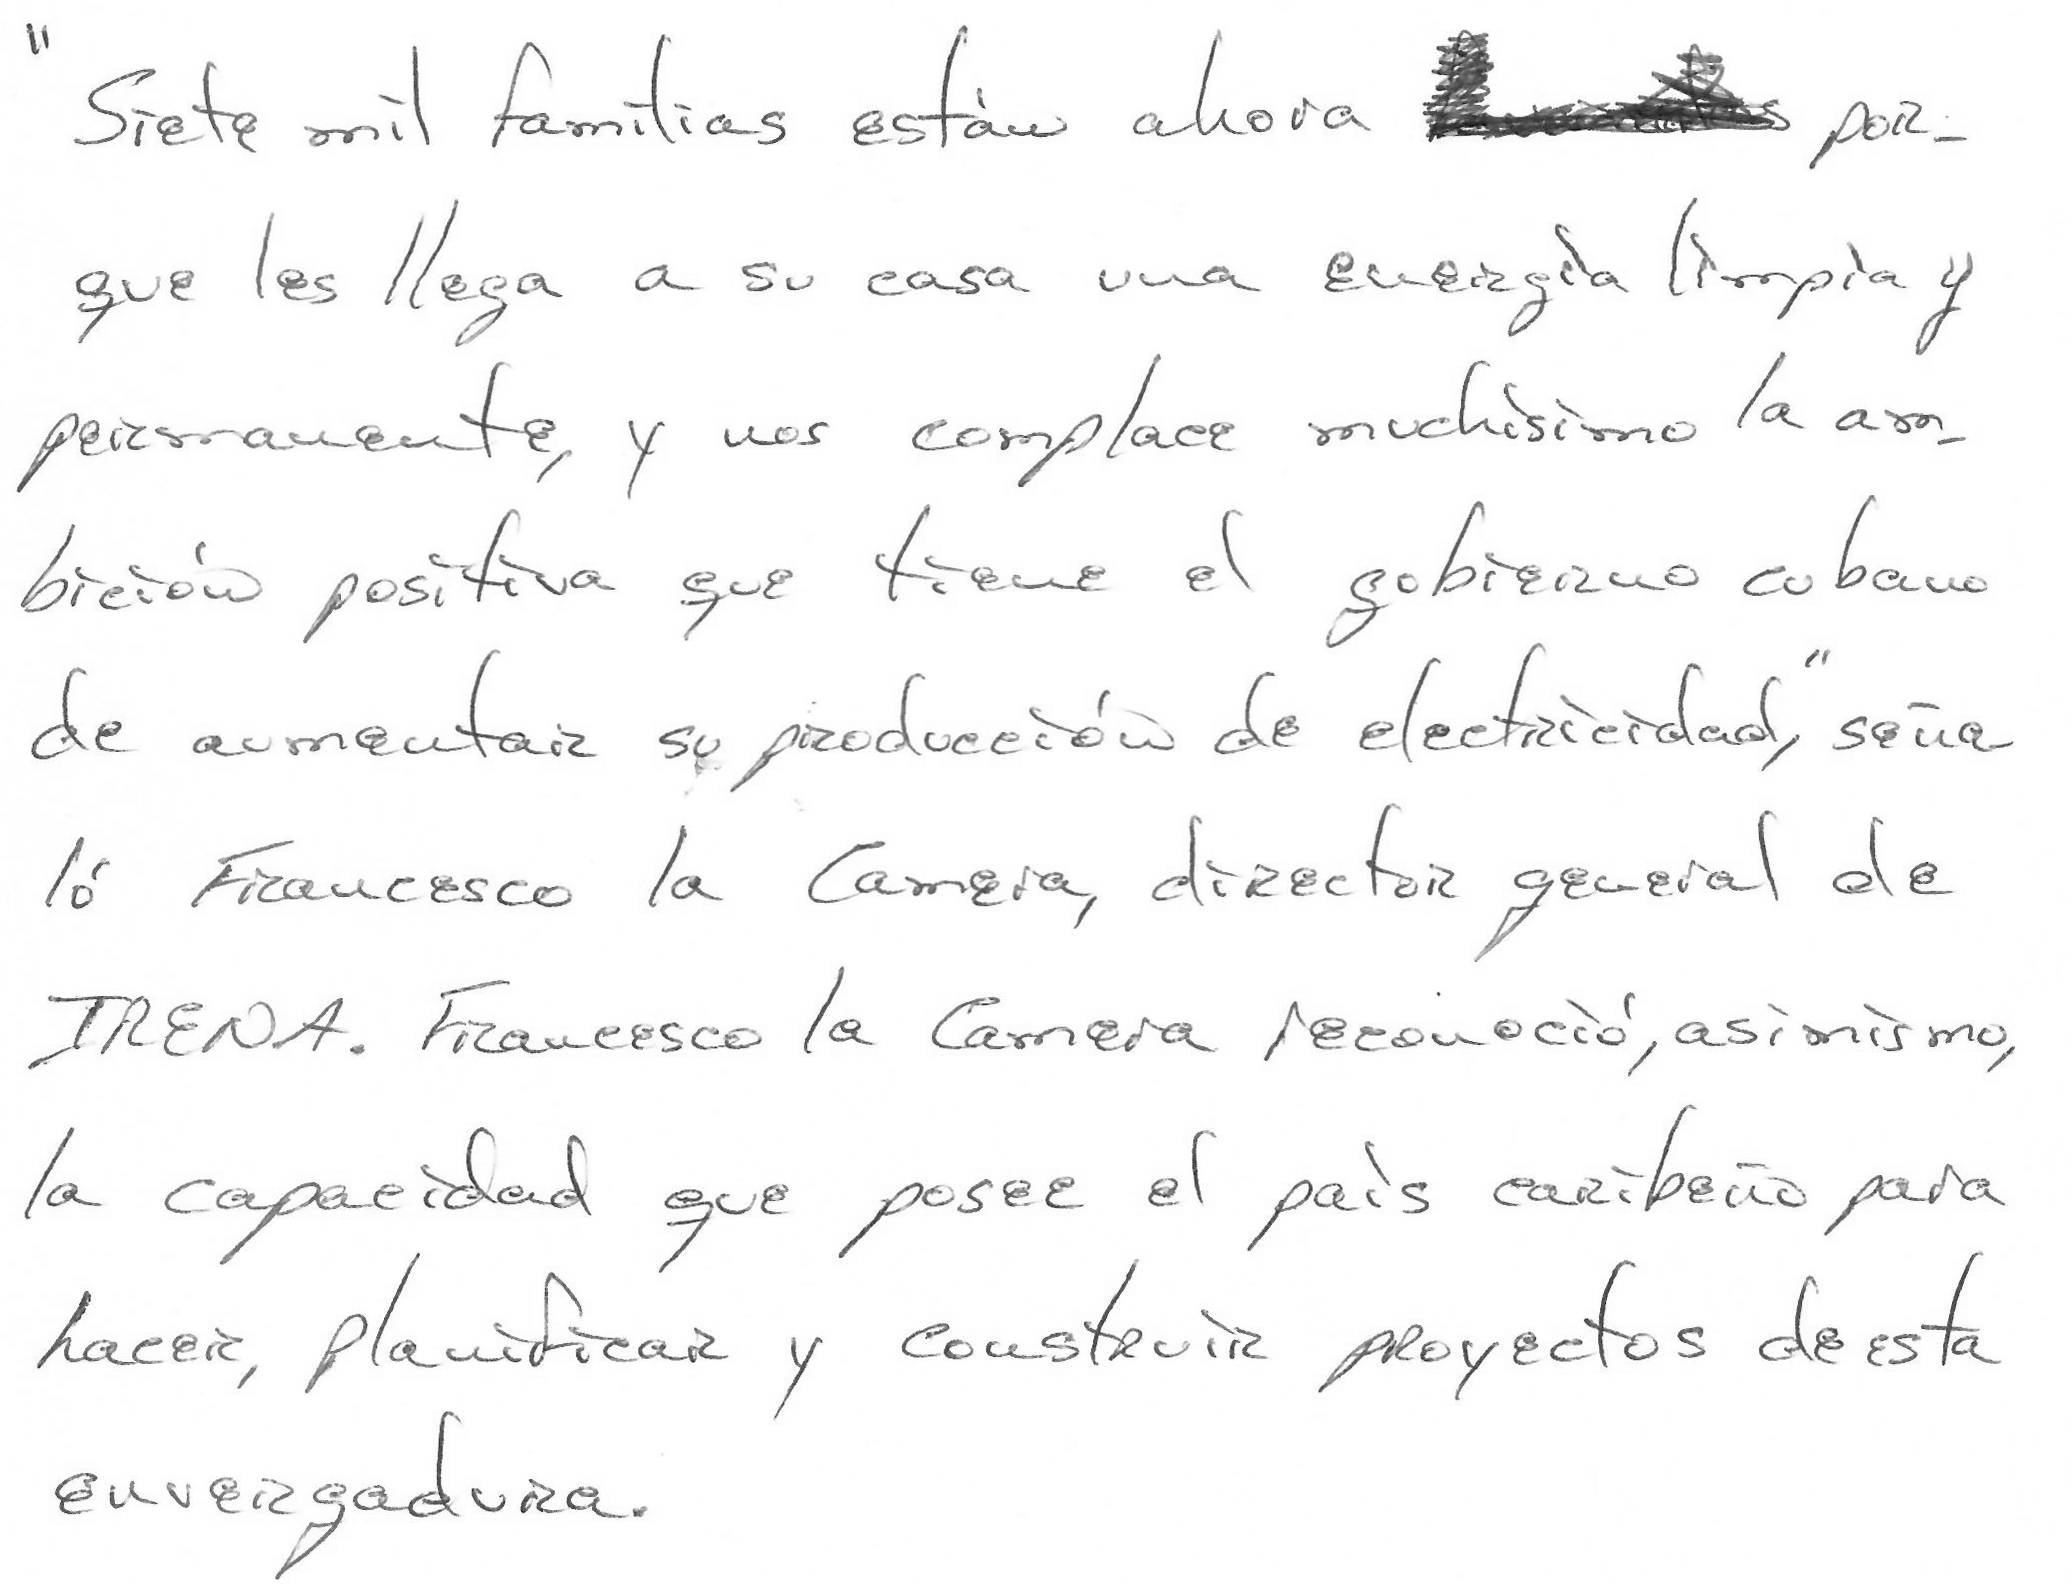 "Siete mil familias están ahora por-
que les llega a su casa una energía limpia y
permanente, y nos complace muchísimo la am-
bición positiva que tiene el gobierno cubano
de aumentar su producción de electricidad," seña-
ló Francesco la Camera, director general de
IRENA. Francesco la Camera reconoció, asimismo,
la capacidad que posee el país caribeño para
hacer, planificar y construir proyectos de esta
envergadura.